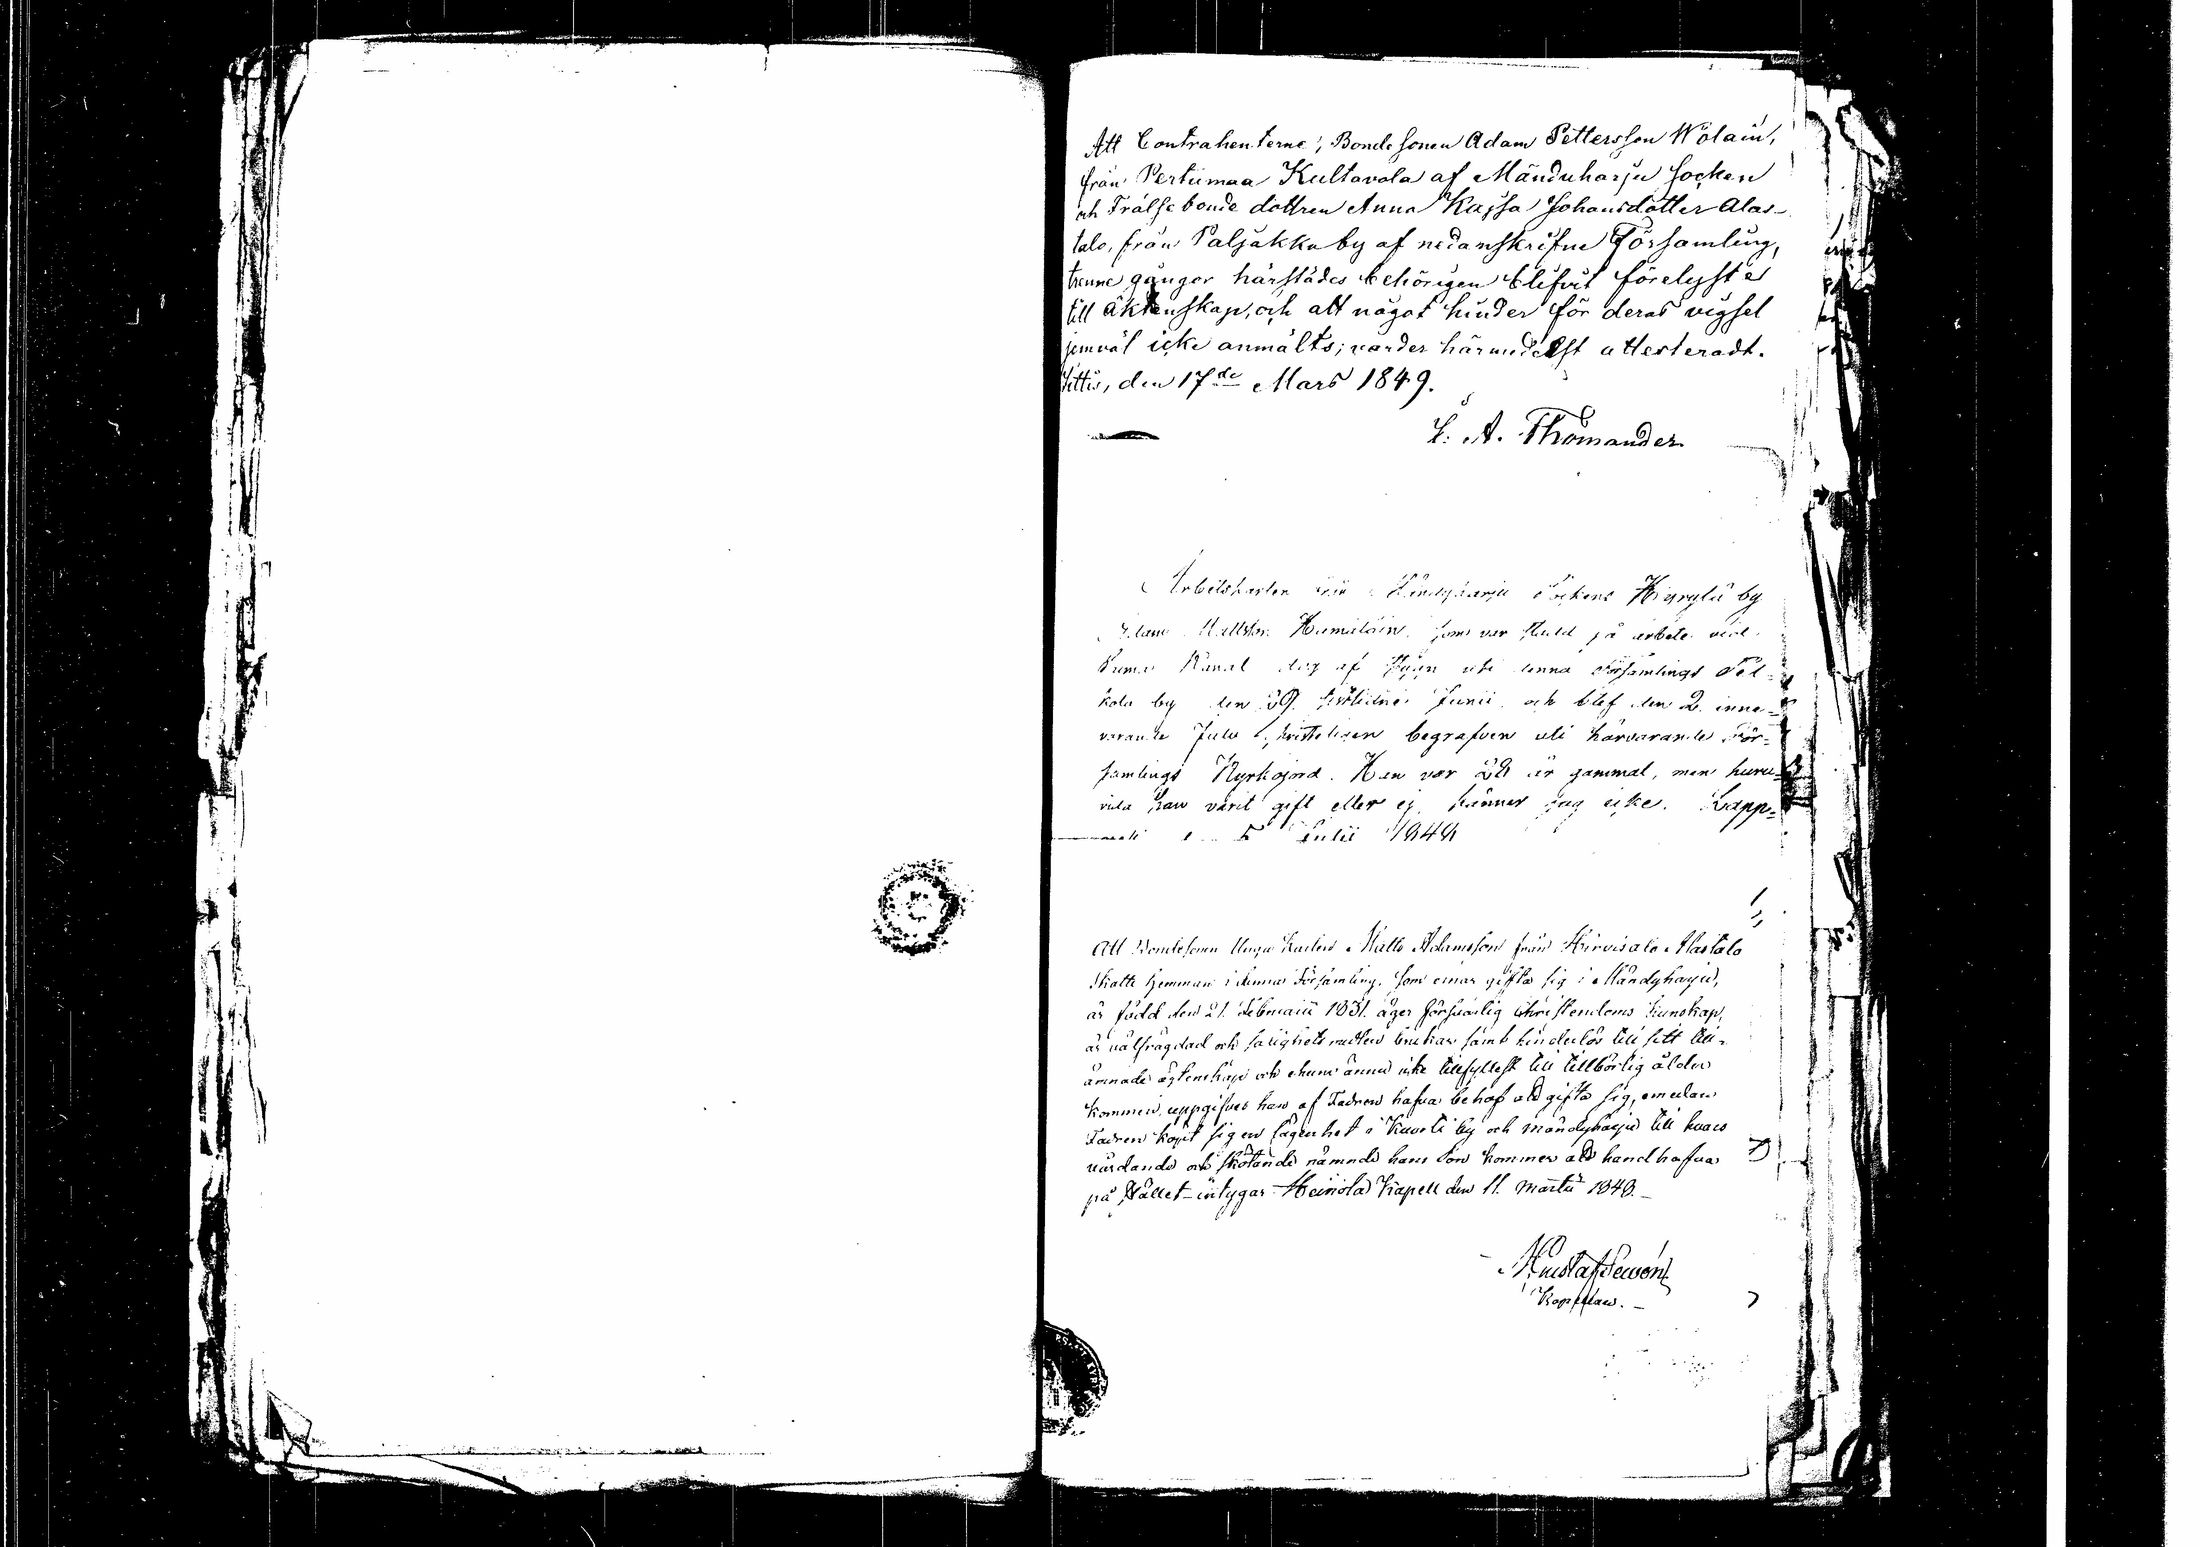 Att Contrahenterne, Bondesonen Adam Pettersson Wölain,
från Pertumaa Kultavala af Mänduharju socken
och Frälsebonde dottren Anna Kajsa Johansdotter Alas-
talo, från Paljakka by af nedanskrifne Församling,
trenne gångor härstädes behörigen blifvit förelyste
till äktenskap, och att något hinder för deras vigsel
jemväl icke anmälts; varder härmedelst attesteradt.
Jittis, den 17de Mars 1849.
L. A. Thomander
Arbetskarlen från Mändyharju Sockens Hyyrylä by
Adam Mattsson Humaläin, som var stadd på arbete vid
Saima Kanal dog af uti denna Församlings
kola by den 29. sistlidne Junii, och blef den 2. inne-
varande Julii christeligen begrafven uti härvarande För-
samlings Kyrkojord. Han var 28 år gammal, men huru-
vida han varit gift eller ej, känner jag icke. Lapp-
Julii 1849
Att Bondesonen Unga Karlen Matts Adamsson från Hirvisalo Alastalo
Skatte Hemman i denna Församling, som ernar gifta sig i Mändyharju,
är född den 21. Februarii 1831. äger försvarlig Christendoms kunskap,
är välfrägdad och salighets medlen brukar samt hinderlös till sitt till-
ämnade ägtenskap och ehuru ännu icke tillfyllest till tillbörlig ålder
kommen, uppgifves han af Fadren hafva behof att gifta sig, emedan
Fadren köpt sig en lägenhet i Kuorti by och Mändyharju till hvars
vårdande och skötande nämnde hans Son kommer att handhafva
på Stället - intygar. Heinola Kapell den 11. Martii 1849. -
Gustaf
Kapellan. -